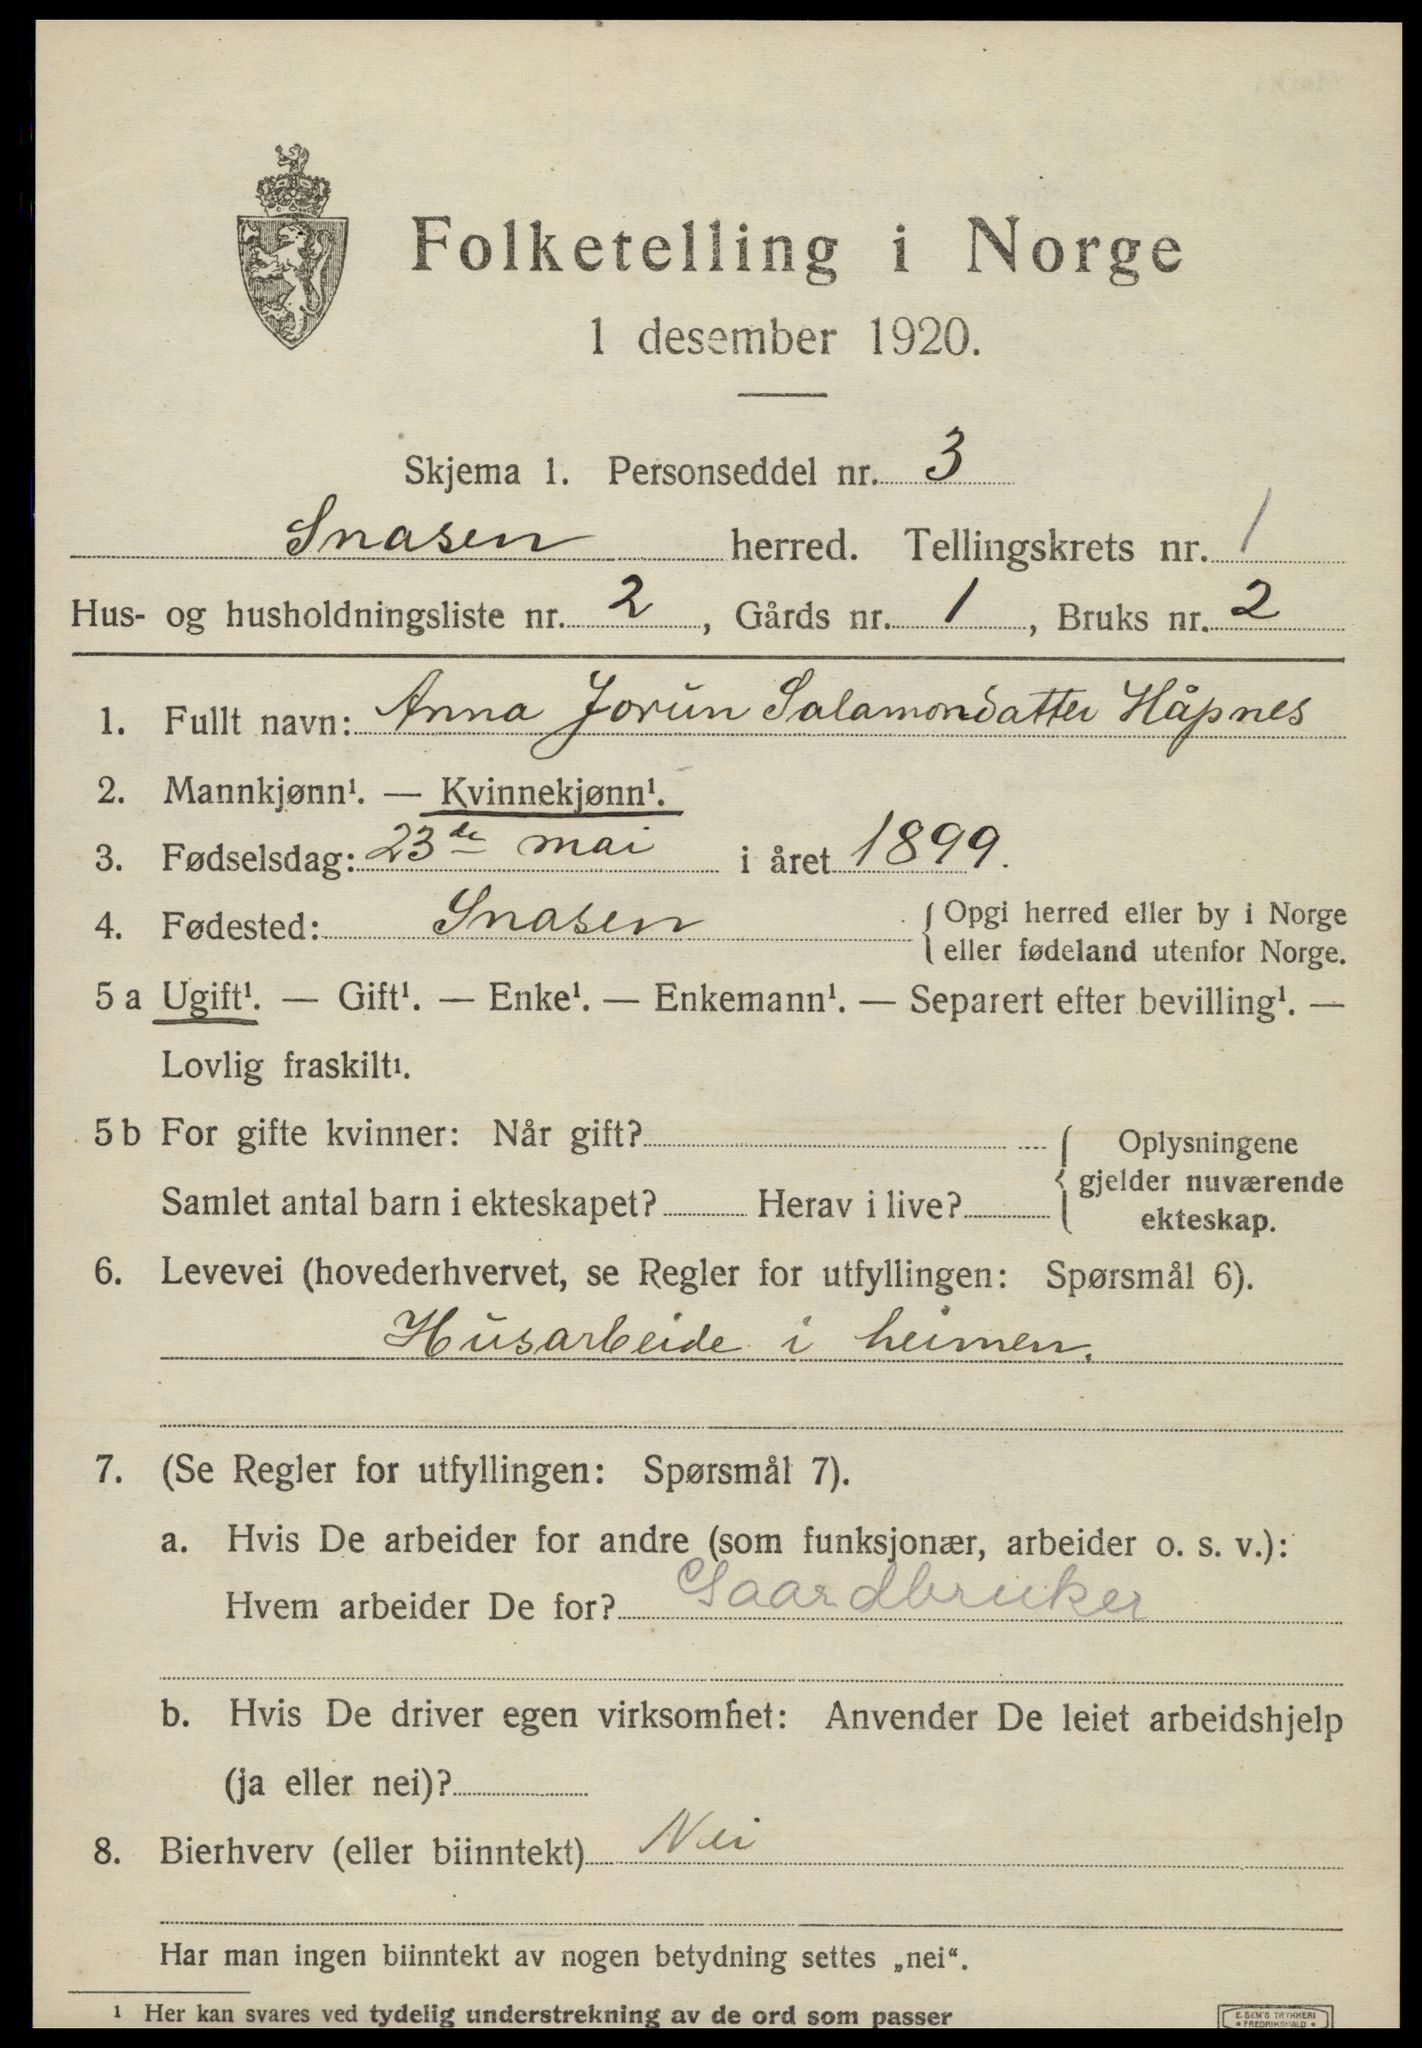 Folketelling i Norge
1 desember 1920.
Skjema 1. Personseddel nr. 3
Snasen herred. Tellingskrets nr. 1
Hus- og husholdningsliste nr. 2, Gårds nr. 1, Bruks nr. 2
1. Fullt navn: Anna Jorun Salamondatter Håpnes
2. Mannkjønn¹. — Kvinnekjønn¹.
3. Fødselsdag: 23de mai i året 1899.
4. Fødested: Snasen { Opgi herred eller by i Norge
eller fødeland utenfor Norge.
5 a Ugift¹. — Gift¹. — Enke¹. — Enkemann¹. — Separert efter bevilling¹. —
Lovlig fraskilt¹.
5 b For gifte kvinner: Når gift? { Oplysningene
gjelder nuværende
Samlet antal barn i ekteskapet? Herav i live? ekteskap.
6. Levevei (hovederhvervet, se Regler for utfyllingen: Spørsmål 6).
Husarbeide i heimen.
7. (Se Regler for utfyllingen: Spørsmål 7).
a. Hvis De arbeider for andre (som funksjonær, arbeider o. s. v.):
Hvem arbeider De for? Gaardbruker
b. Hvis De driver egen virksomhet: Anvender De leiet arbeidshjelp
(ja eller nei)?
8. Bierhverv (eller biinntekt) Nei
Har man ingen biinntekt av nogen betydning settes „nei“.
¹ Her kan svares ved tydelig understrekning av de ord som passer
E. SEM'S TRYKKERI
• FREDRIKSHALD •